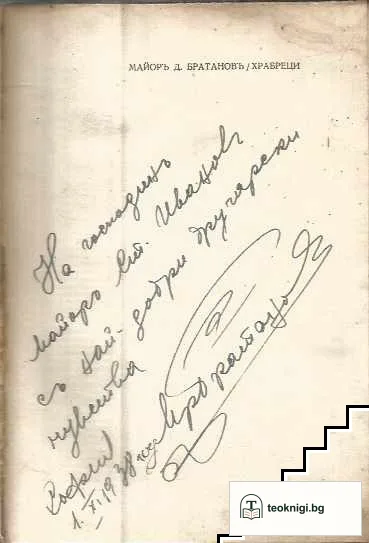 МАЙОРЪ Д. БРАТАНОВЪ / ХРАБРЕЦИ
На господинъ
майоръ Ст. Ивановъ
съ най-добри другарски
чувства
Братановъ
София
1. XI. 1938 год.
teoknigi.bg